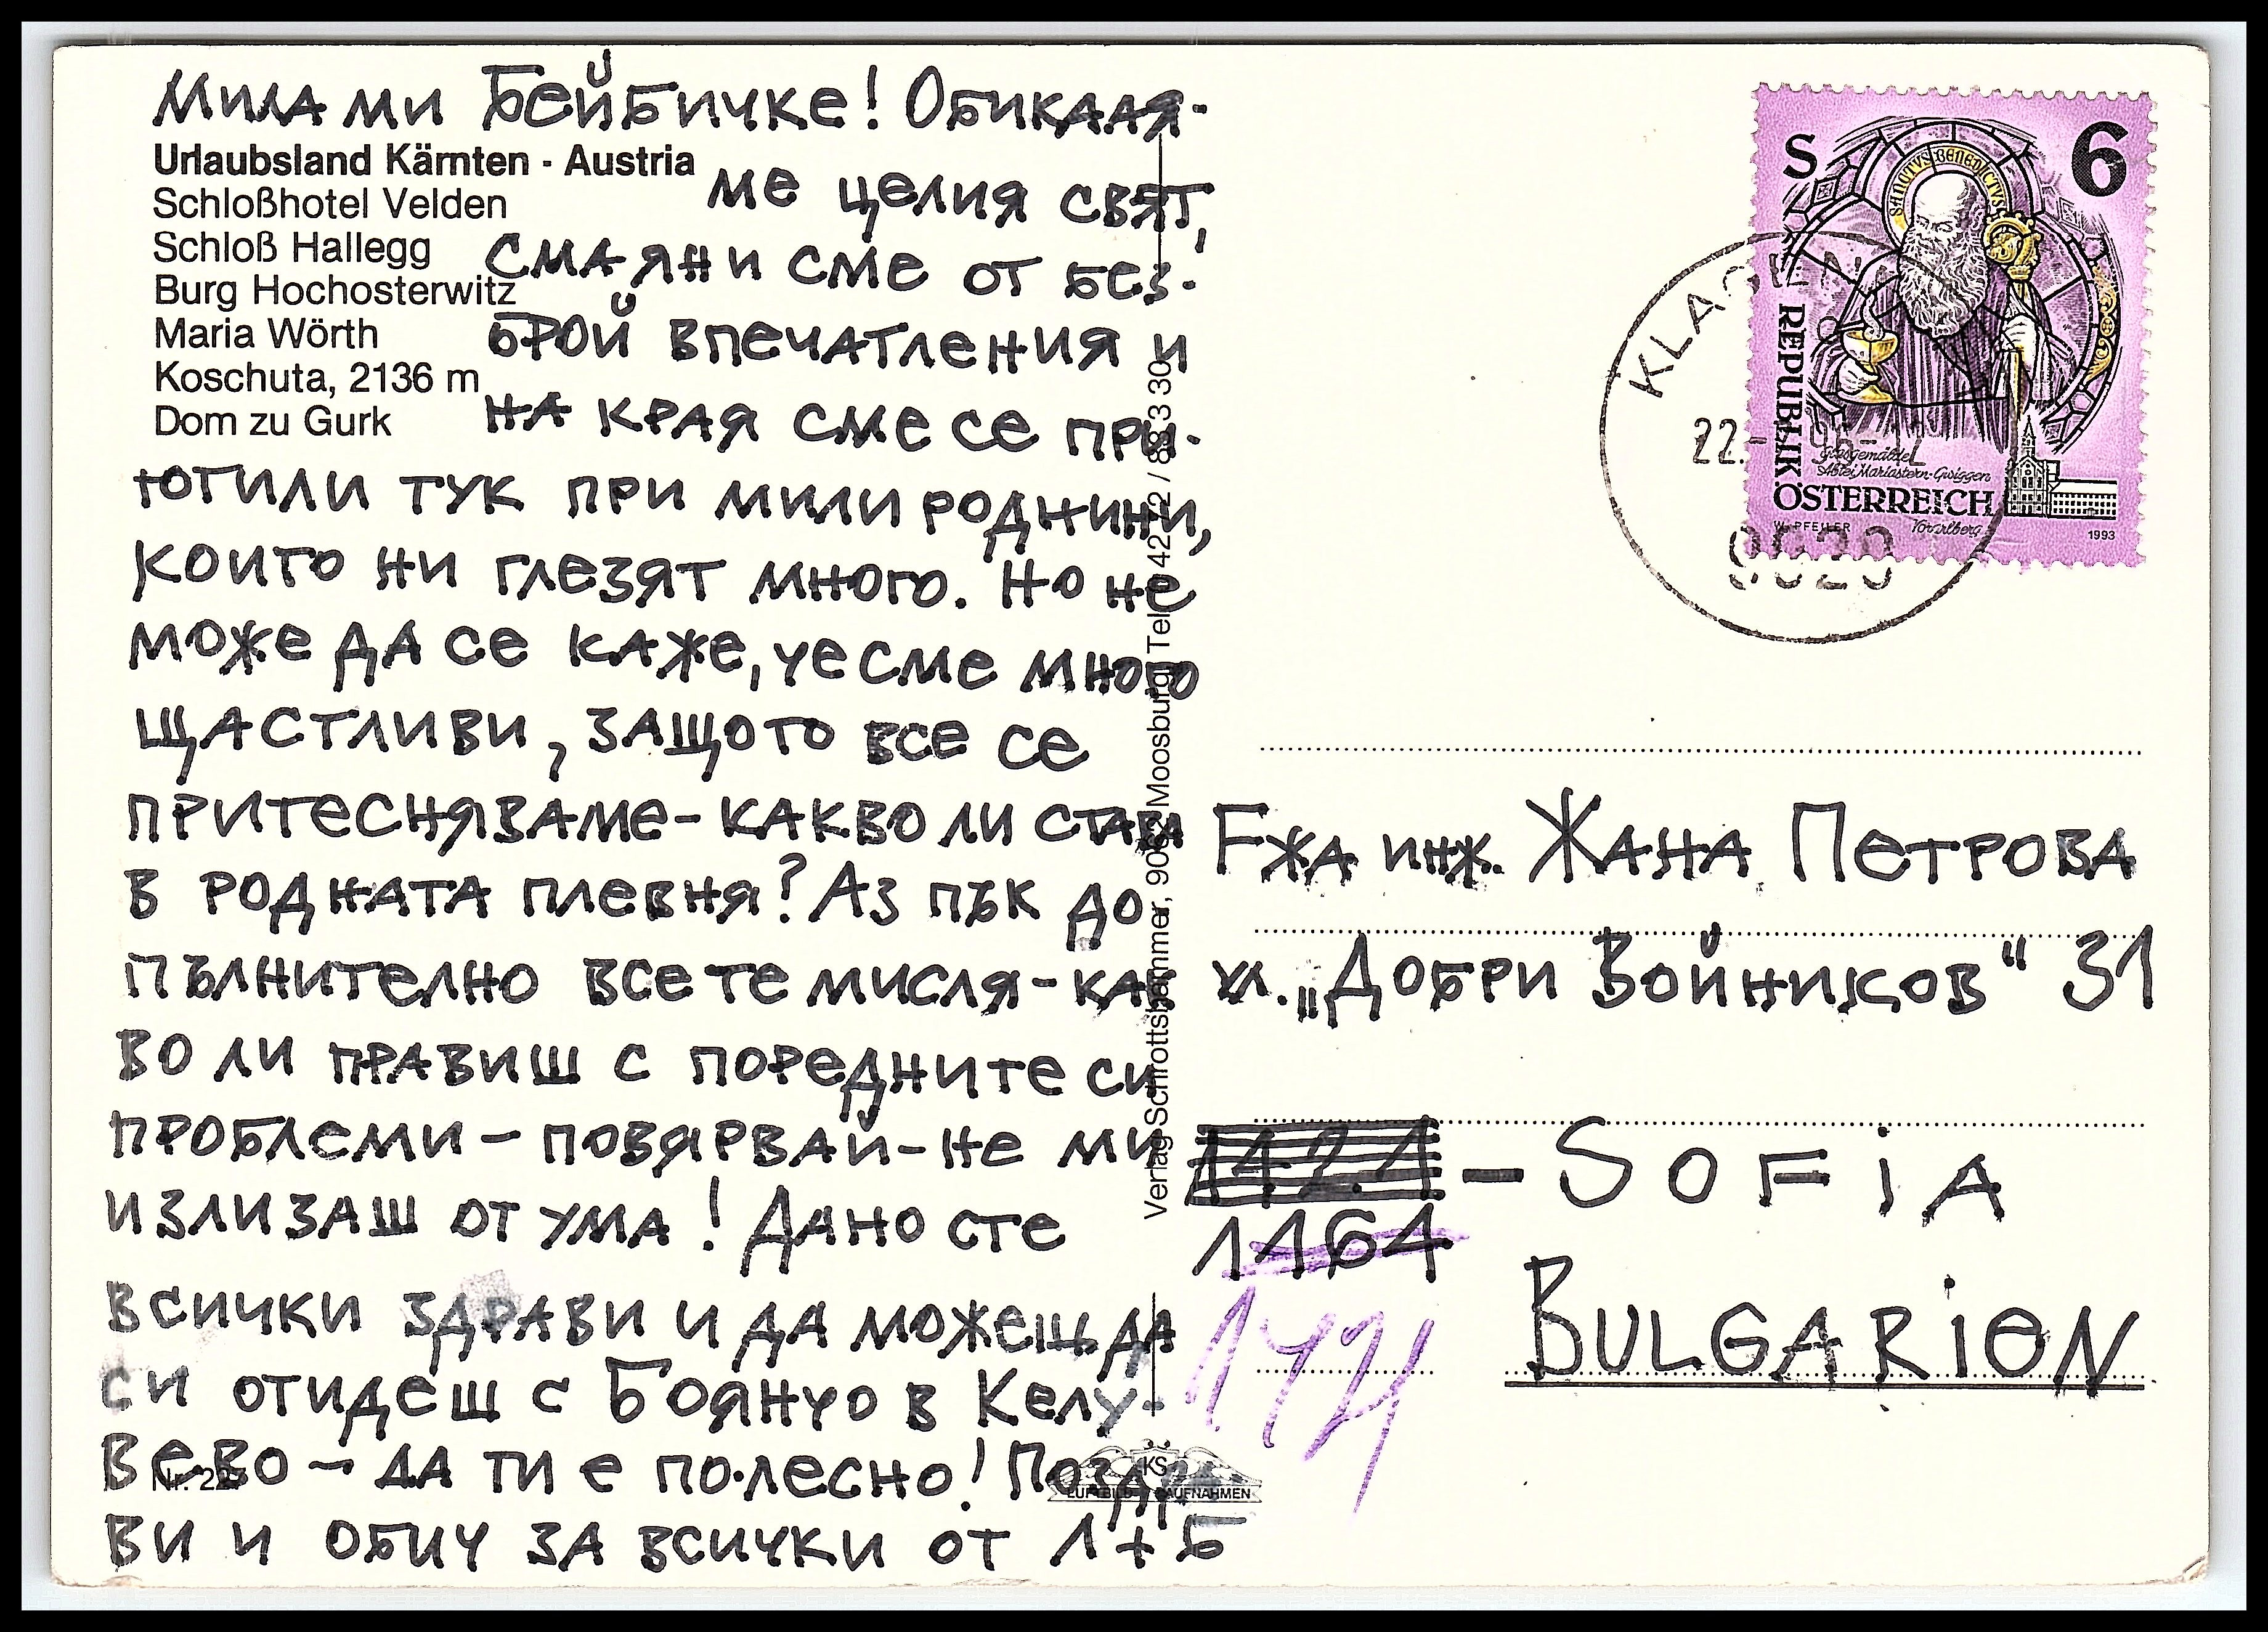 Мила ми Бейбичке! Обикаля-
ме целия свят,
смаяни сме от без-
брой впечатления и
на края сме се при-
ютили тук при мили роднини,
които ни глезят много. Но не
може да се каже, че сме много
щастливи, защото все се
притесняваме - какво ли става
в родната Плевня? Аз пък до
пълнително все те мисля - как
во ли правиш с поредните си
проблеми - повярвай - не ми
излизаш от ума! Дано сте
всички здрави и да можеш да
си отидеш с Боянчо в Келу-
вево - да ти е по-лесно! Поздра-
ви и обич за всички от Л + Б
Urlaubsland Kärnten - Austria
Schloßhotel Velden
Schloß Hallegg
Burg Hochosterwitz
Maria Wörth
Koschuta, 2136 m
Dom zu Gurk
Nr. 22
Verlag Schrottshammer, 9062 Moosburg, Tel. 42 72 / 83 3 30
KS
LUFTBILD AUFNAHMEN
S 6
SANCTVS BENEDICTVS
REPUBLIK
ÖSTERREICH
Glasgemälde
Abtei Mariastern-Gwiggen
Vorarlberg
W. PFEILER
1993
KLAGENF
22.
9020
Гжа инж. Жана Петрова
ул. „Добри Войников" 31
1421 - SOFiA
1164
1421
BULGARiEN